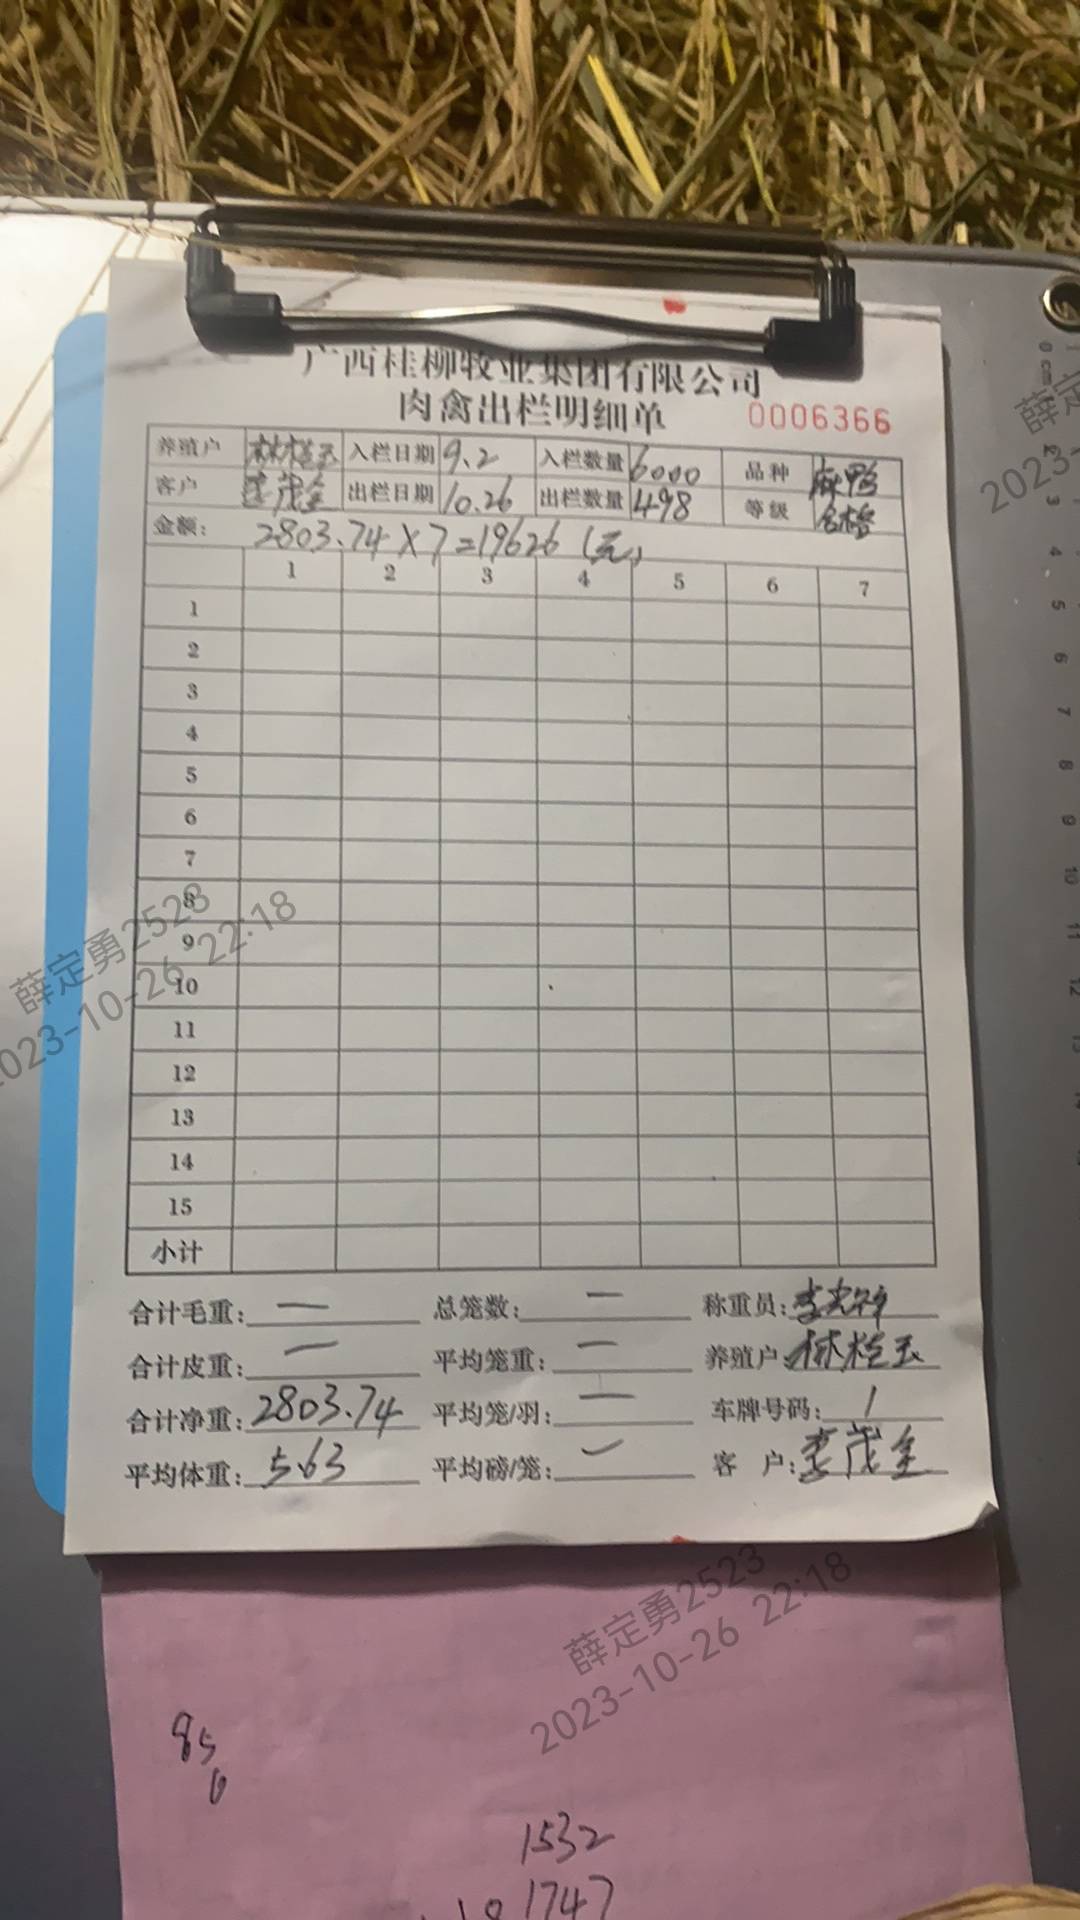 广西桂柳牧业集团有限公司
肉禽出栏明细单 0006366
养殖户 林栏玉 入栏日期 9.2 入栏数量 6000 品种 麻鸭
客户 李茂全 出栏日期 10.26 出栏数量 498 等级 合格
金额: 2803.74×7=19626(元)
1 2 3 4 5 6 7
1
2
3
4
5
6
7
8
9
10
11
12
13
14
15
小计
合计毛重: 一 总笼数: 一 称重员:
合计皮重: 一 平均笼重: 一 养殖户: 林栏玉
合计净重: 2803.74 平均笼/羽: 一 车牌号码: 1
平均体重: 5.63 平均磅/笼: 一 客 户: 李茂全
薛定勇2523
2023-10-26 22:18
薛定勇2523
2023-10-26 22:18
850
1532
1747
0cm
3
4
5
6
7
8
9
10
11
12
13